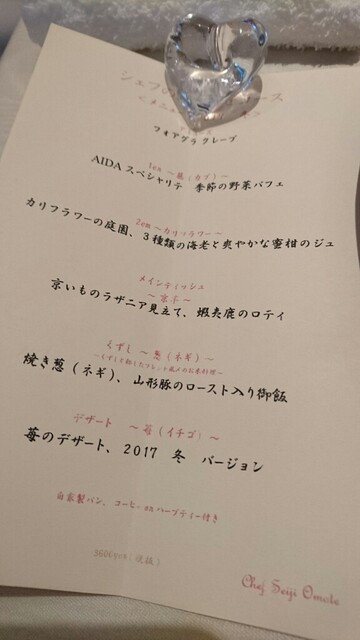 フォアグラ クレープ
AIDA スペシャリテ 季節の野菜パフェ
2en ～カリフラワー～
カリフラワーの庭園、3種類の海老と爽やかな蜜柑のジュ
メインディッシュ
～京芋～
京いものラザニア見立て、蝦夷鹿のロティ
くずし ～葱(ネギ)～
焼き葱(ネギ)、山形豚のロースト入り御飯
デザート ～苺(イチゴ)～
苺のデザート、2017 冬 バージョン
自家製パン、コーヒー or ハーブティー付き
Chef Seiji Omote